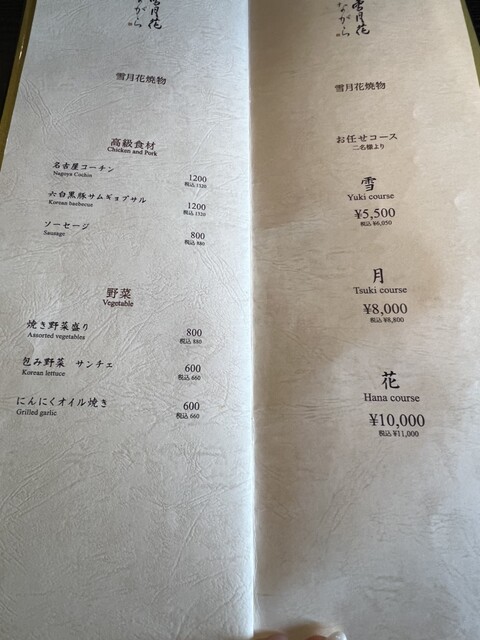 雪月花
ながら
雪月花焼物
高級食材
Chicken and Pork
名古屋コーチン
Nagoya Cochin
1200
税込 1320
六白黒豚サムギョプサル
Korean barbecue
1200
税込 1320
ソーセージ
Sausage
800
税込 880
野菜
Vegetable
焼き野菜盛り
Assorted vegetables
800
税込 880
包み野菜 サンチェ
Korean lettuce
600
税込 660
にんにくオイル焼き
Grilled garlic
600
税込 660
雪月花
ながら
雪月花焼物
お任せコース
二名様より
雪
Yuki course
¥5,500
税込 ¥6,050
月
Tsuki course
¥8,000
税込 ¥8,800
花
Hana course
¥10,000
税込 ¥11,000